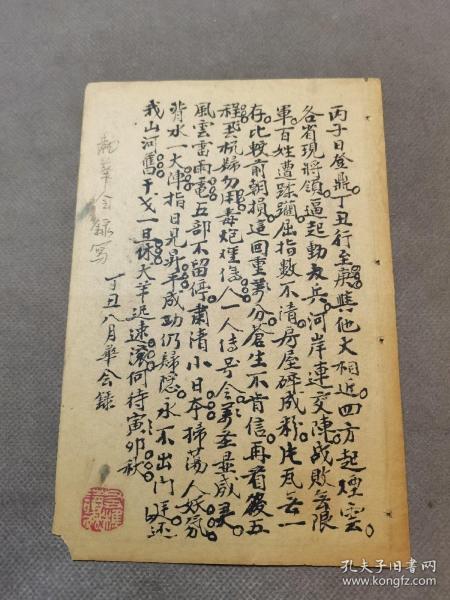 丙子日登鼎。丁丑行至庚。他犬相近。四方起煙雲。
各省現將領。逼起動友兵。河岸連交陣。戰敗無限
軍。百姓遭蹂躪。屈指數不清。房屋碎成粉。片瓦無一
存。比較前朝損。這回重萬分。蒼生不肯信。再看後五
程。婦勿用毒炮。傷人一人傳号令。至
風雲雷雨電。五部不留停。肅清小日本。掃蕩人妖氛。
背水一大陣。指日見昇平。成功仍歸隱。永不出門。還
我山河舊。干戈一旦休。犬羊迅速滾。何待寅卯秋。
丁丑八月華會錄
華會錄寫
孔夫子旧书网
www.kongfz.com